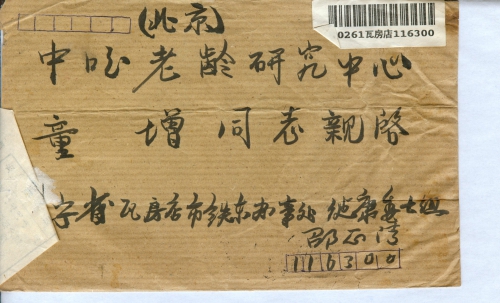 (北京)
0261瓦房店116300
中国老龄研究中心
童增同志亲启
宁省瓦房店市铁东办事处健康委七组
邵正清
116300